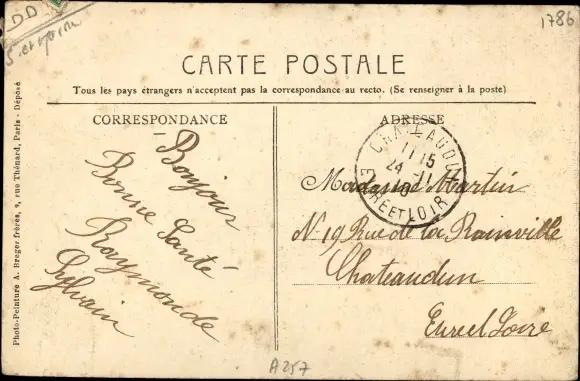 DD
1786
CARTE POSTALE
Tous les pays étrangers n'acceptent pas la correspondance au recto. (Se renseigner à la poste)
CORRESPONDANCE
Bonjour
Bonne Santé
Raymonde
Sylvain
ADRESSE
CHATEAUDUN
11 15
24 - 11
EURE ET LOIR
Madame Martin
N-19 Rue de la Rainville
Chateaudun
Eure el Loire
Photo-Peinture A. Breger frères, 9, rue Thénard, Paris - Déposé
A257